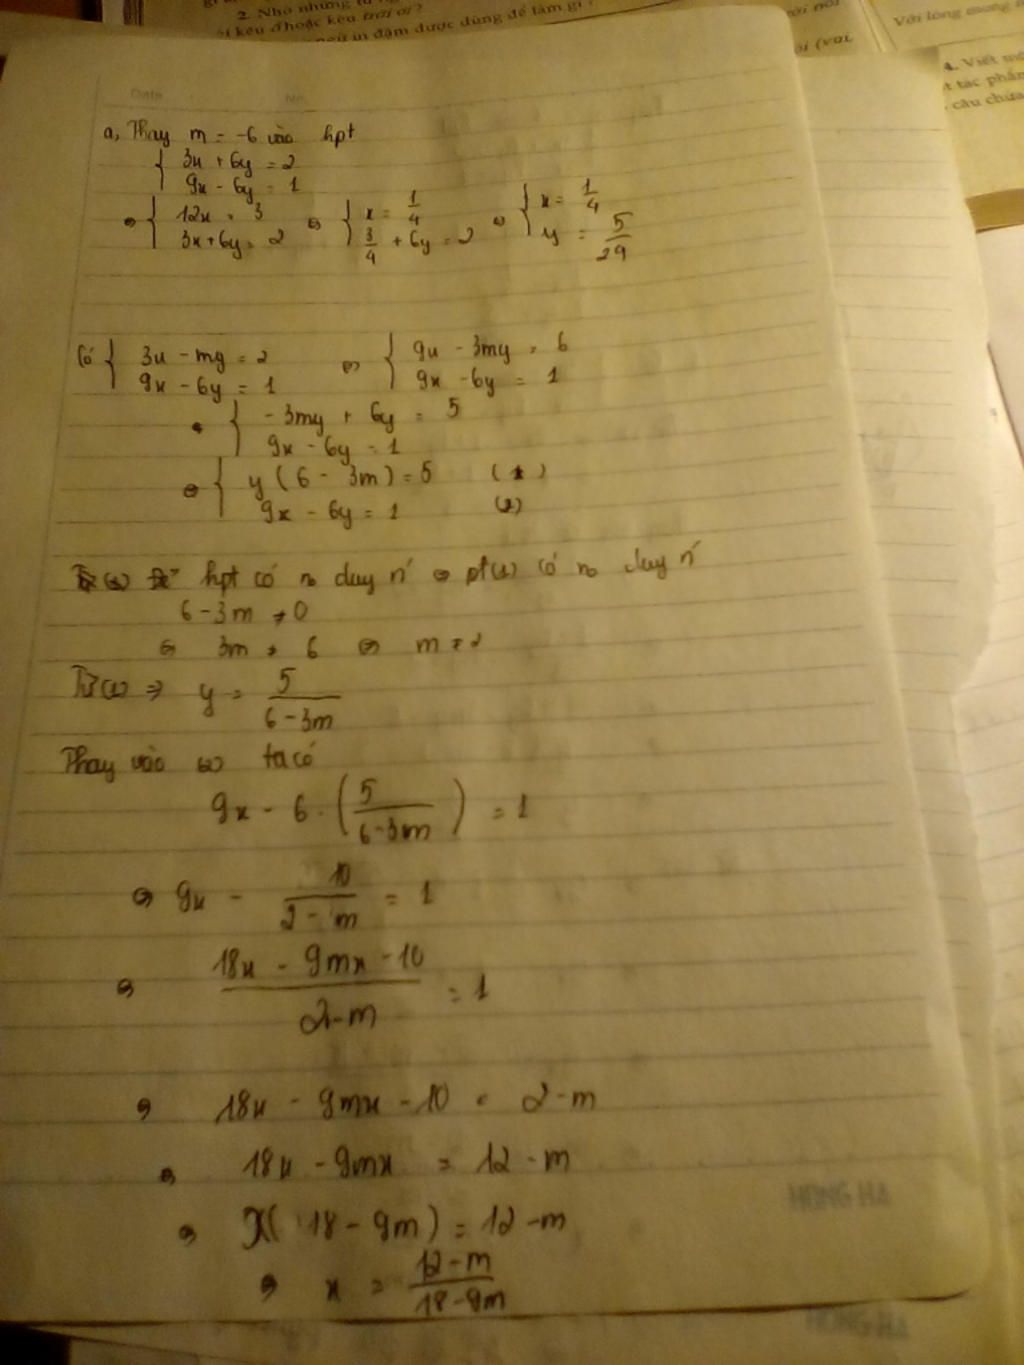 2. Nhớ những từ ng
i kêu ở hoặc kêu trời ơi ?
ngữ in đậm được dùng để làm gì ?
Với lòng mong
4. Viết mộ
t tác phẩm
câu chứa
Date No.
a, Thay m = -6 vào hpt
{ 3x + 6y = 2
9x - 6y = 1
⇔ { 12x = 3 ⇔ { x = 1/4 ⇔ { x = 1/4
3x + 6y = 2 3/4 + 6y = 2 y = 5/29
Có { 3x - my = 2 ⇔ { 9x - 3my = 6
9x - 6y = 1 9x - 6y = 1
⇔ { -3my + 6y = 5
9x - 6y = 1
⇔ { y(6 - 3m) = 5 (1)
9x - 6y = 1 (2)
hpt có no duy n' ⇔ pt(1) có no duy n'
6 - 3m ≠ 0
⇔ 3m ≠ 6 ⇔ m ≠ 2
Từ(1) ⇒ y = 5/(6 - 3m)
Thay vào (2) ta có
9x - 6 . (5/(6 - 3m)) = 1
⇔ 9x - 10/(2 - m) = 1
⇔ (18x - 9mx - 10)/(2 - m) = 1
⇒ 18x - 9mx - 10 = 2 - m
⇒ 18x - 9mx = 12 - m
⇒ x( 18 - 9m) = 12 - m
⇒ x = (12 - m)/(18 - 9m)
HONG HA
HONG HA